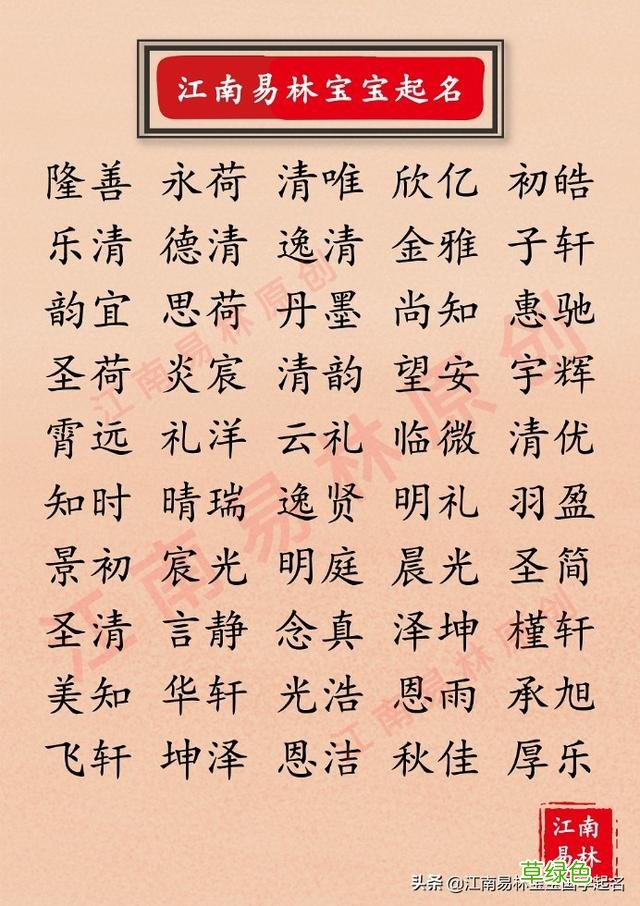 江南易林宝宝起名
隆善 永荷 清唯 欣亿 初皓
乐清 德清 逸清 金雅 子轩
韵宜 思荷 丹墨 尚知 惠驰
圣荷 炎宸 清韵 望安 宇辉
霄远 礼洋 云礼 临微 清优
知时 晴瑞 逸贤 明礼 羽盈
景初 宸光 明庭 晨光 圣简
圣清 言静 念真 泽坤 槿轩
美知 华轩 光浩 恩雨 承旭
飞轩 坤泽 恩洁 秋佳 厚乐
江南易林原创
江南易林原创
江南易林原创
江南
易林
草绿色
头条 @江南易林宝宝国学起名